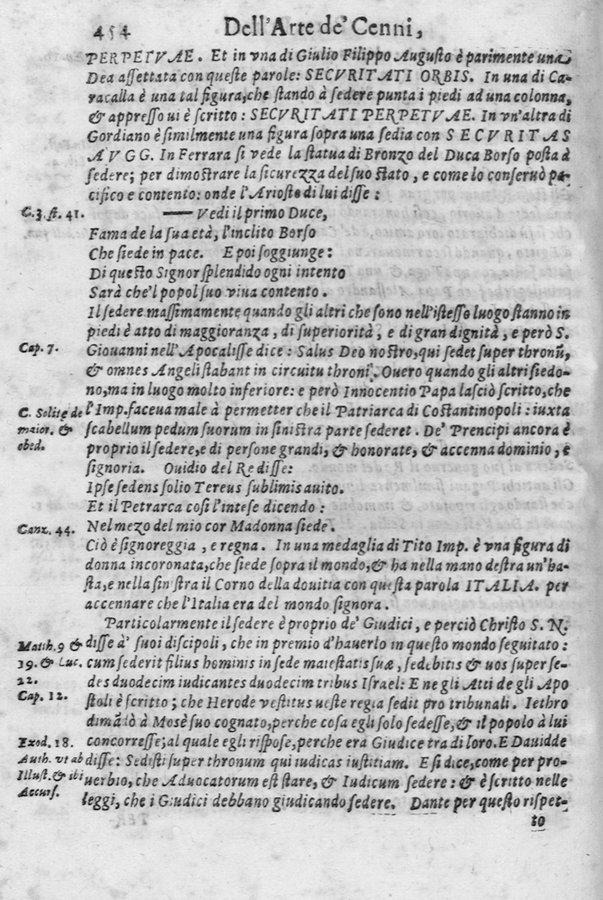 454 Dell'Arte de' Cenni,
PERPETVAE. Et in vna di Giulio Filippo Augusto è parimente una
Dea assettata con queste parole: SECVRITATI ORBIS. In una di Ca-
racalla è una tal figura, che stando à sedere punta i piedi ad una colonna,
& appresso ui è scritto: SECVRITATI PERPETVAE. In vn'altra di
Gordiano è similmente una figura sopra una sedia con SECVRITAS
AVGG. In Ferrara si vede la statua di Bronzo del Duca Borso posta à
sedere; per dimostrare la sicurezza del suo stato, e come lo conseruò pa-
cifico e contento: onde l'Ariosto di lui disse:
C. 3. st. 41. —— Vedi il primo Duce,
Fama de la sua età, l'inclito Borso
Che siede in pace. E poi soggiunge:
Di questo Signor splendido ogni intento
Sarà che'l popol suo viua contento.
Il sedere massimamente quando gli altri che sono nell'istesso luogo stanno in
piedi è atto di maggioranza, di superiorità, e di gran dignità, e però S.
Cap. 7. Giouanni nell'Apocalisse dice: Salus Deo nostro, qui sedet super thronū,
& omnes Angeli stabant in circuitu throni. Ouero quando gli altri siedo-
no, ma in luogo molto inferiore: e però Innocentio Papa lasciò scritto, che
C. Solite de l'Imp. faceua male à permetter che il Patriarca di Costantinopoli: iuxta
maior. & scabellum pedum suorum in sinistra parte sederet. De' Prencipi ancora è
obed. proprio il sedere, e di persone grandi, & honorate, & accenna dominio, e
signoria. Ouidio del Re disse:
Ipse sedens solio Tereus sublimis auito.
Et il Petrarca così l'intese dicendo:
Canz. 44. Nel mezo del mio cor Madonna siede.
Ciò è signoreggia, e regna. In una medaglia di Tito Imp. è vna figura di
donna incoronata, che siede sopra il mondo, & ha nella mano destra un'ha-
sta, e nella sinistra il Corno della douitia con questa parola ITALIA. per
accennare che l'Italia era del mondo signora.
Particolarmente il sedere è proprio de' Giudici, e perciò Christo S. N.
Matth. 9 & disse à' suoi discipoli, che in premio d'hauerlo in questo mondo seguitato:
19. & Luc. cum sederit filius hominis in sede maiestatis suæ, sedebitis & uos super se-
22. des duodecim iudicantes duodecim tribus Israel: E ne gli Atti de gli Apo
Cap. 12. stoli è scritto; che Herode vestitus ueste regia sedit pro tribunali. Iethro
dimādò à Mosè suo cognato, perche cosa egli solo sedesse, & il popolo à lui
Exod. 18. concorresse; al quale egli rispose, perche era Giudice tra di loro. E Dauidde
Auth. vt ab disse: Sedisti super thronum qui iudicas iustitiam. E si dice, come per pro-
Illust. & ibi uerbio, che Aduocatorum est stare, & Iudicum sedere: & è scritto nelle
Accurs. leggi, che i Giudici debbano giudicando sedere. Dante per questo rispet-
to